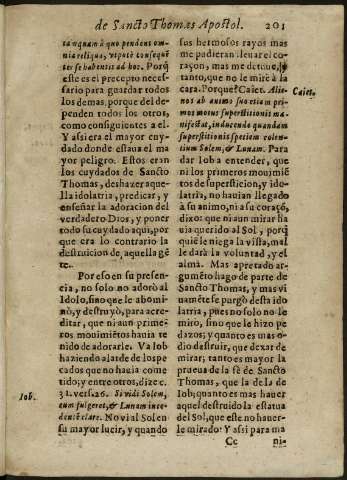 de Sancto Thomas Apostol. 201
tanquam à quo pendent om-
nia reliqua, vtpotè consequē
ter se habentia ad hoc. Porq̃
este es el precepto neces-
sario para guardar todos
los demas, porque del de-
penden todos los otros,
como consiguientes a el.
Y assi era el mayor cuy-
dado donde estaua el ma
yor peligro. Estos eran
los cuydados de Sancto
Thomas, deshazer aque-
lla idolatria, predicar, y
enseñar la adoracion del
verdadero Dios, y poner
todo su cuydado aqui, por
que era lo contrario la
destruicion de aquella gē
te.
Por eso en su presen-
cia, no solo no adorò al
Idolo, sino que le abomi-
nò, y destruyò, para acre-
ditar, que ni aun prime-
ros mouimiētos hauia te
nido de adorarle. Va Iob
haziendo alarde de los pe-
cados que no hauia come
tido; y entre otros, dize c.
Iob.
31. vers. 26. Si vidi Solem,
cum fulgeret, & Lunam ince-
dentē clarè. No vi al Sol en
su mayor lucir, y quando
sus hermosos rayos mas
me pudieran lleuar el co-
raçon, mas me detuue, y
tanto, que no le mirè à la
cara. Porque? Caiet. Alie-
Caiet.
nos ab animo suo etiam pri-
mos motus superstitionis ma-
nifestat, inducendo quandam
superstitionis speciem colen-
tium Solem, & Lunam. Para
dar Iob a entender, que
ni los primeros mouimiē
tos de supersticion, y ido-
latria, no hauian llegado
à su animo, ni a su coraçō,
dixo: que ni aun mirar ha
uia querido al Sol, porq̃
quiē le niega la vista, mal
le darà la voluntad, y el
alma. Mas apretado ar-
gumēto hago de parte de
Sancto Thomas, y mas vi
uamēte se purgò desta ido
latria, pues no solo no le
mirò, sino que le hizo pe
dazos; y quanto es mas o-
dio destruir, que dexar de
mirar; tanto es mayor la
prueua de la fè de Sancto
Thomas, que la de la de
Iob; quanto es mas hauer
aquel destruido la estatua
del Sol, que este no hauer-
le mirado. Y assi para ma
Cc ni-